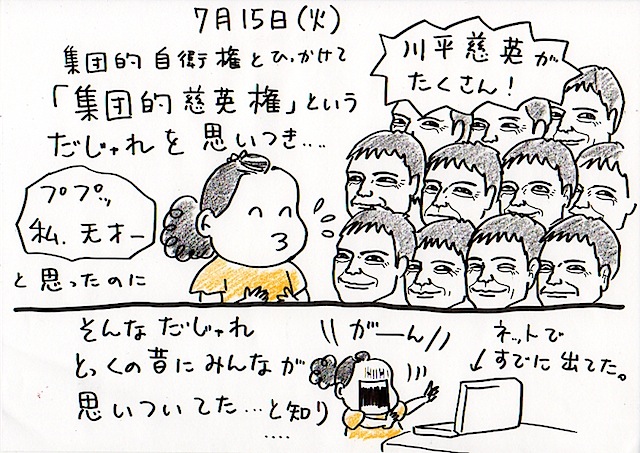 7月15日(火)
集団的自衛権とひっかけて
「集団的慈英権」という
だじゃれを思いつき‥‥
川平慈英が
たくさん!
ププッ
私、天才ー
と思ったのに
そんなだじゃれ
とっくの昔にみんなが
思いついてた…と知り
‥‥
がーん
ネットで
すでに出てた。